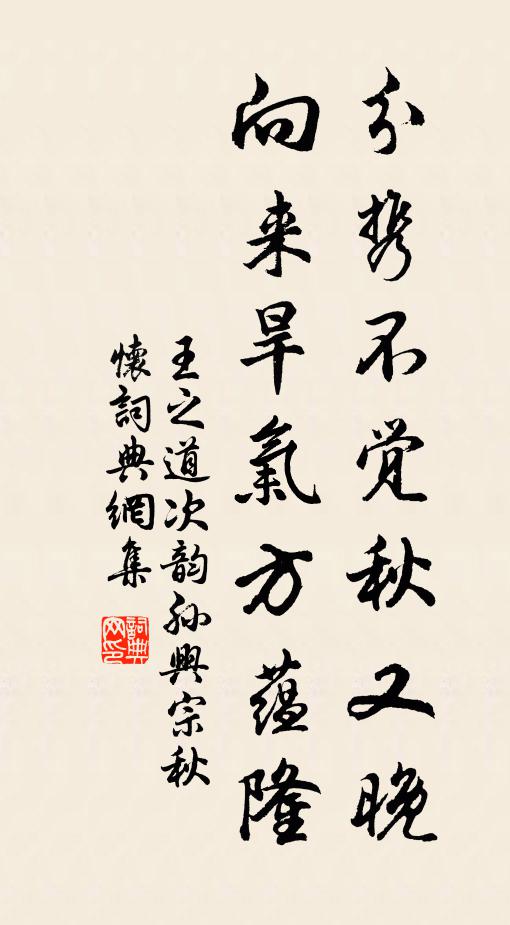 分携不觉秋又晚
向来旱氣方蕴隆
王之道次韵孙興宗秋
懷詞典網集
詞典网印